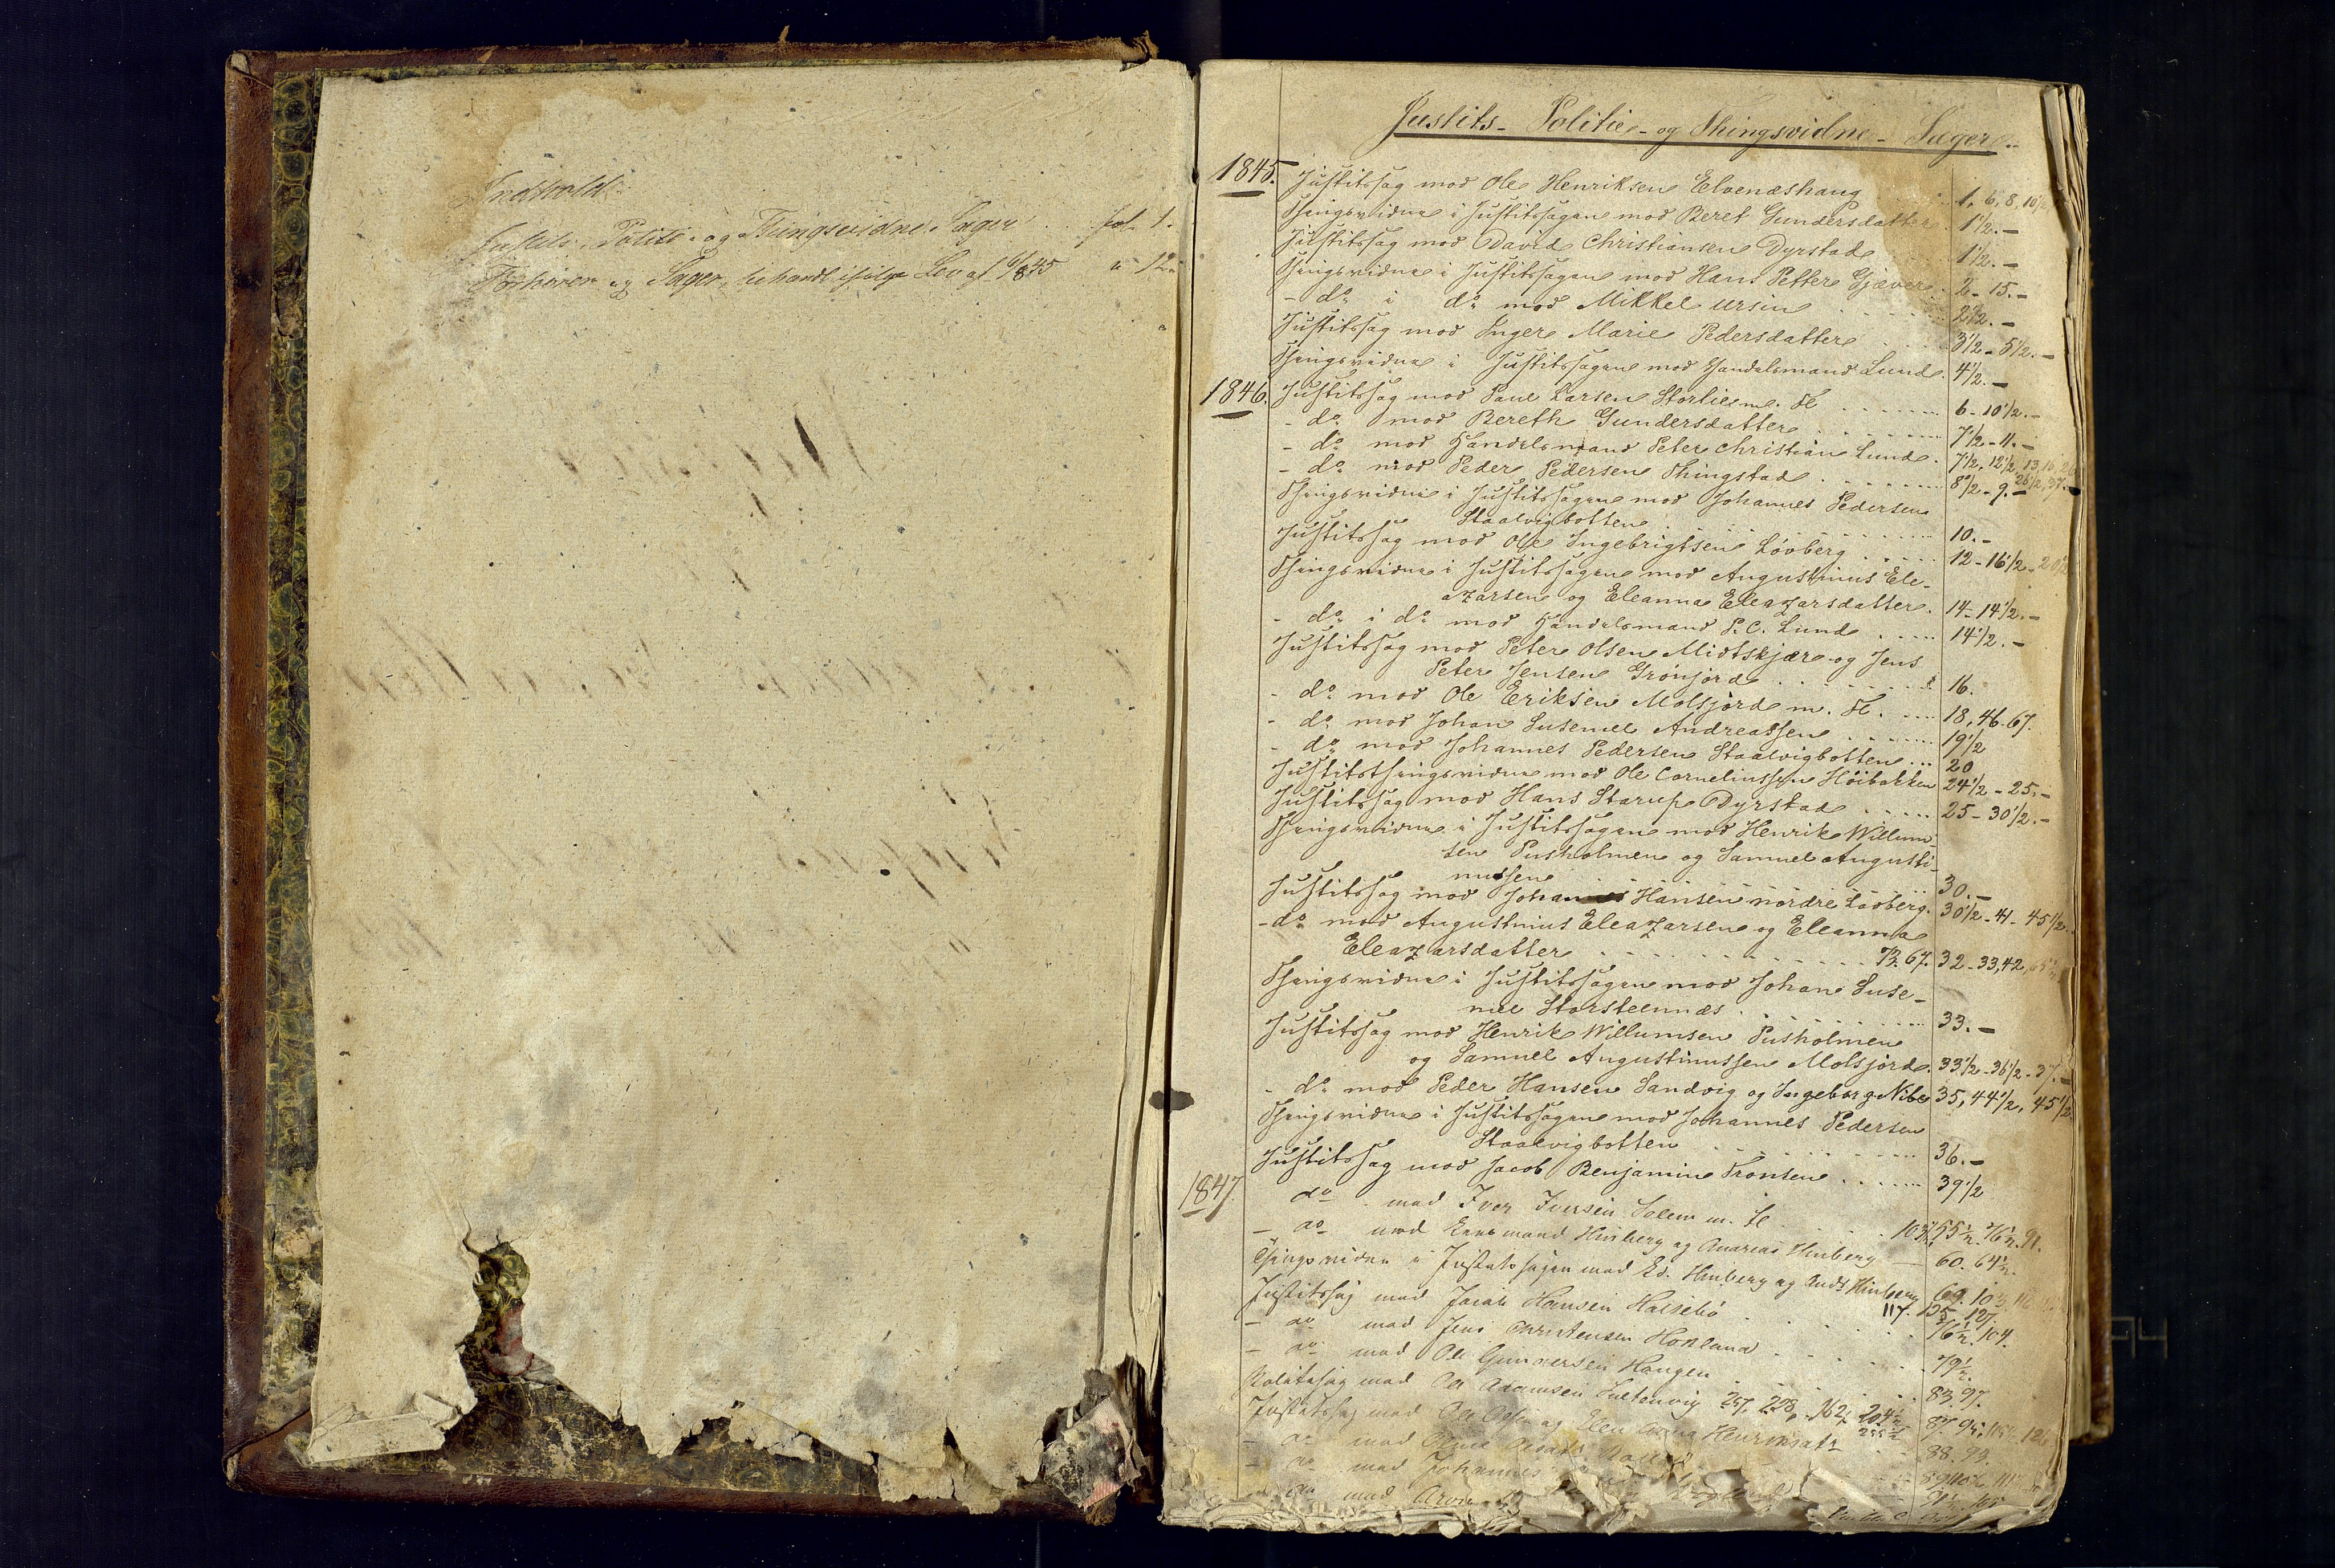 Indhold:
Justits-, Politi- og Thingsvidne Sager . . fol. 1.
Forhører og Sager, behandl. ifølge Lov af 6/8 45 " 12.
Justits- Politie- og Thingsvidne- Sager.
1845. Justitssag mod Ole Henriksen Elvenæshaug 1, 6, 8, 10
Thingsvidne i Justitssagen mod Beret Gundersdatter. 1 1/2.-
Justitssag mod David Christiansen Dyrstad 1 1/2.-
Thingsvidne i Justitssagen mod Hans Petter Gjæver. 2-15.-
- do i do mod Mikkel Ursin 2 1/2.-
Justitssag mod Inger Marie Pedersdatter 3 1/2-5 1/2.-
Thingsvidne i Justitssagen mod Handelsmand Lund. 4 1/2.-
1846. Justitssag mod Paul Larsen Storlie m. Fl. 6-10 1/2.-
- do mod Bereth Gundersdatter 7 1/2-11.-
- do mod Handelsmand Peter Christian Lund. 7 1/2, 12 1/2, 13, 16,
- do mod Peder Pedersen Thingstad 8 1/2-9.- 26 1/2, 37.-
Thingsvidne i Justitssagen mod Johannes Pedersen
Staalvigbotten 10.-
Justitssag mod Ole Ingebrigtsen Lövberg 12-16 1/2-20 1/2
Thingsvidne i Justitssagen mod Augustinus Ele-
azarsen og Eleanna Eleazarsdatter. 14-14 1/2.-
- do i do mod Handelsmand P. C. Lund 14 1/2.-
Justitssag mod Peter Olsen Midtskjær og Jens
Peter Jensen Grønjord 16.
- do mod Ole Eriksen Molsjord m. Fl. 18, 46-67.
- do mod Johan Susemel Andreassen 19 1/2
- do mod Johannes Pedersen Staalvigbotten 20
Justitsthingsvidne mod Ole Corneliussen Höibakken 24 1/2-25.-
Justitssag mod Hans Starup Dyrstad 25-30 1/2.-
Thingsvidne i Justitssagen mod Henrik Willum-
sen Pusholmen og Samuel Augusti-
nussen 30.-
Justitssag mod Johan Hansen nordre Lavberg. 30 1/2-41-45 1/2.
- do mod Augustinus Eleazarsen og Eleanna
Eleazarsdatter 73. 67. 32-33, 42,
Thingsvidne i Justitssagen mod Johan Suse-
mel Storsteennæs 33.-
Justitssag mod Henrik Willumsen Pusholmen
og Samuel Augustinussen Molsjord. 33 1/2-36 1/2-37.-
- do mod Peder Hansen Sandvig og Ingeborg Nibe 35, 44 1/2, 45 1/2
Thingsvidne i Justitssagen mod Johannes Pedersen
Staalvigbotten 36.-
Justitssag mod Jacob Benjamin Tronsen 39 1/2
1847. do mod Iver Iversen Solem m. Fl. 103, 55 1/2. 76 1/2. 91.
- do mod Hinberg og Andreas Hinberg 60. 64 1/2.
Thingsvidne i Justitssagen mod Ed. Hinberg og Andr. Hinberg 69.
Justitssag mod Jacob Hansen 117. 125. 127.
- do mod Jens Christensen 76 1/2. 104.
- do mod Ole Gundersen Haugen 79 1/2.
Politisag mod Ole Adamsen 83. 97.
Justitssag mod Ole Olsen og Elen Anna Henriksdtr 87.
- do mod 88. 93.
- do mod Johannes
- do mod